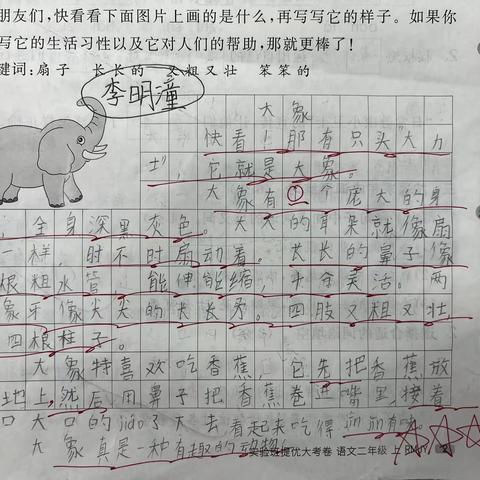 朋友们，快看看下面图片上画的是什么，再写写它的样子。如果你
写它的生活习性以及它对人们的帮助，那就更棒了！
键词：扇子 长长的 又粗又壮 笨笨的
李明潼
大象
快看！那有只头"大力
士"，它就是大象。
大象有①个庞大的身
，全身深黑灰色。大大的耳朵就像扇
一样，时不时扇动着。长长的鼻子像
根粗水管，能伸能缩，十分灵活。两
象牙像尖尖的长长矛。四肢又粗又壮，
四根柱子。
大象特喜欢吃香蕉，它先把香蕉放
地上，然后用鼻子把香蕉卷进嘴里接着
口大口的jiáo了大去看起来吃得jīn jīn有味。
大象真是一种有趣的动物！
实验班提优大考卷 语文二年级 上 RMJY